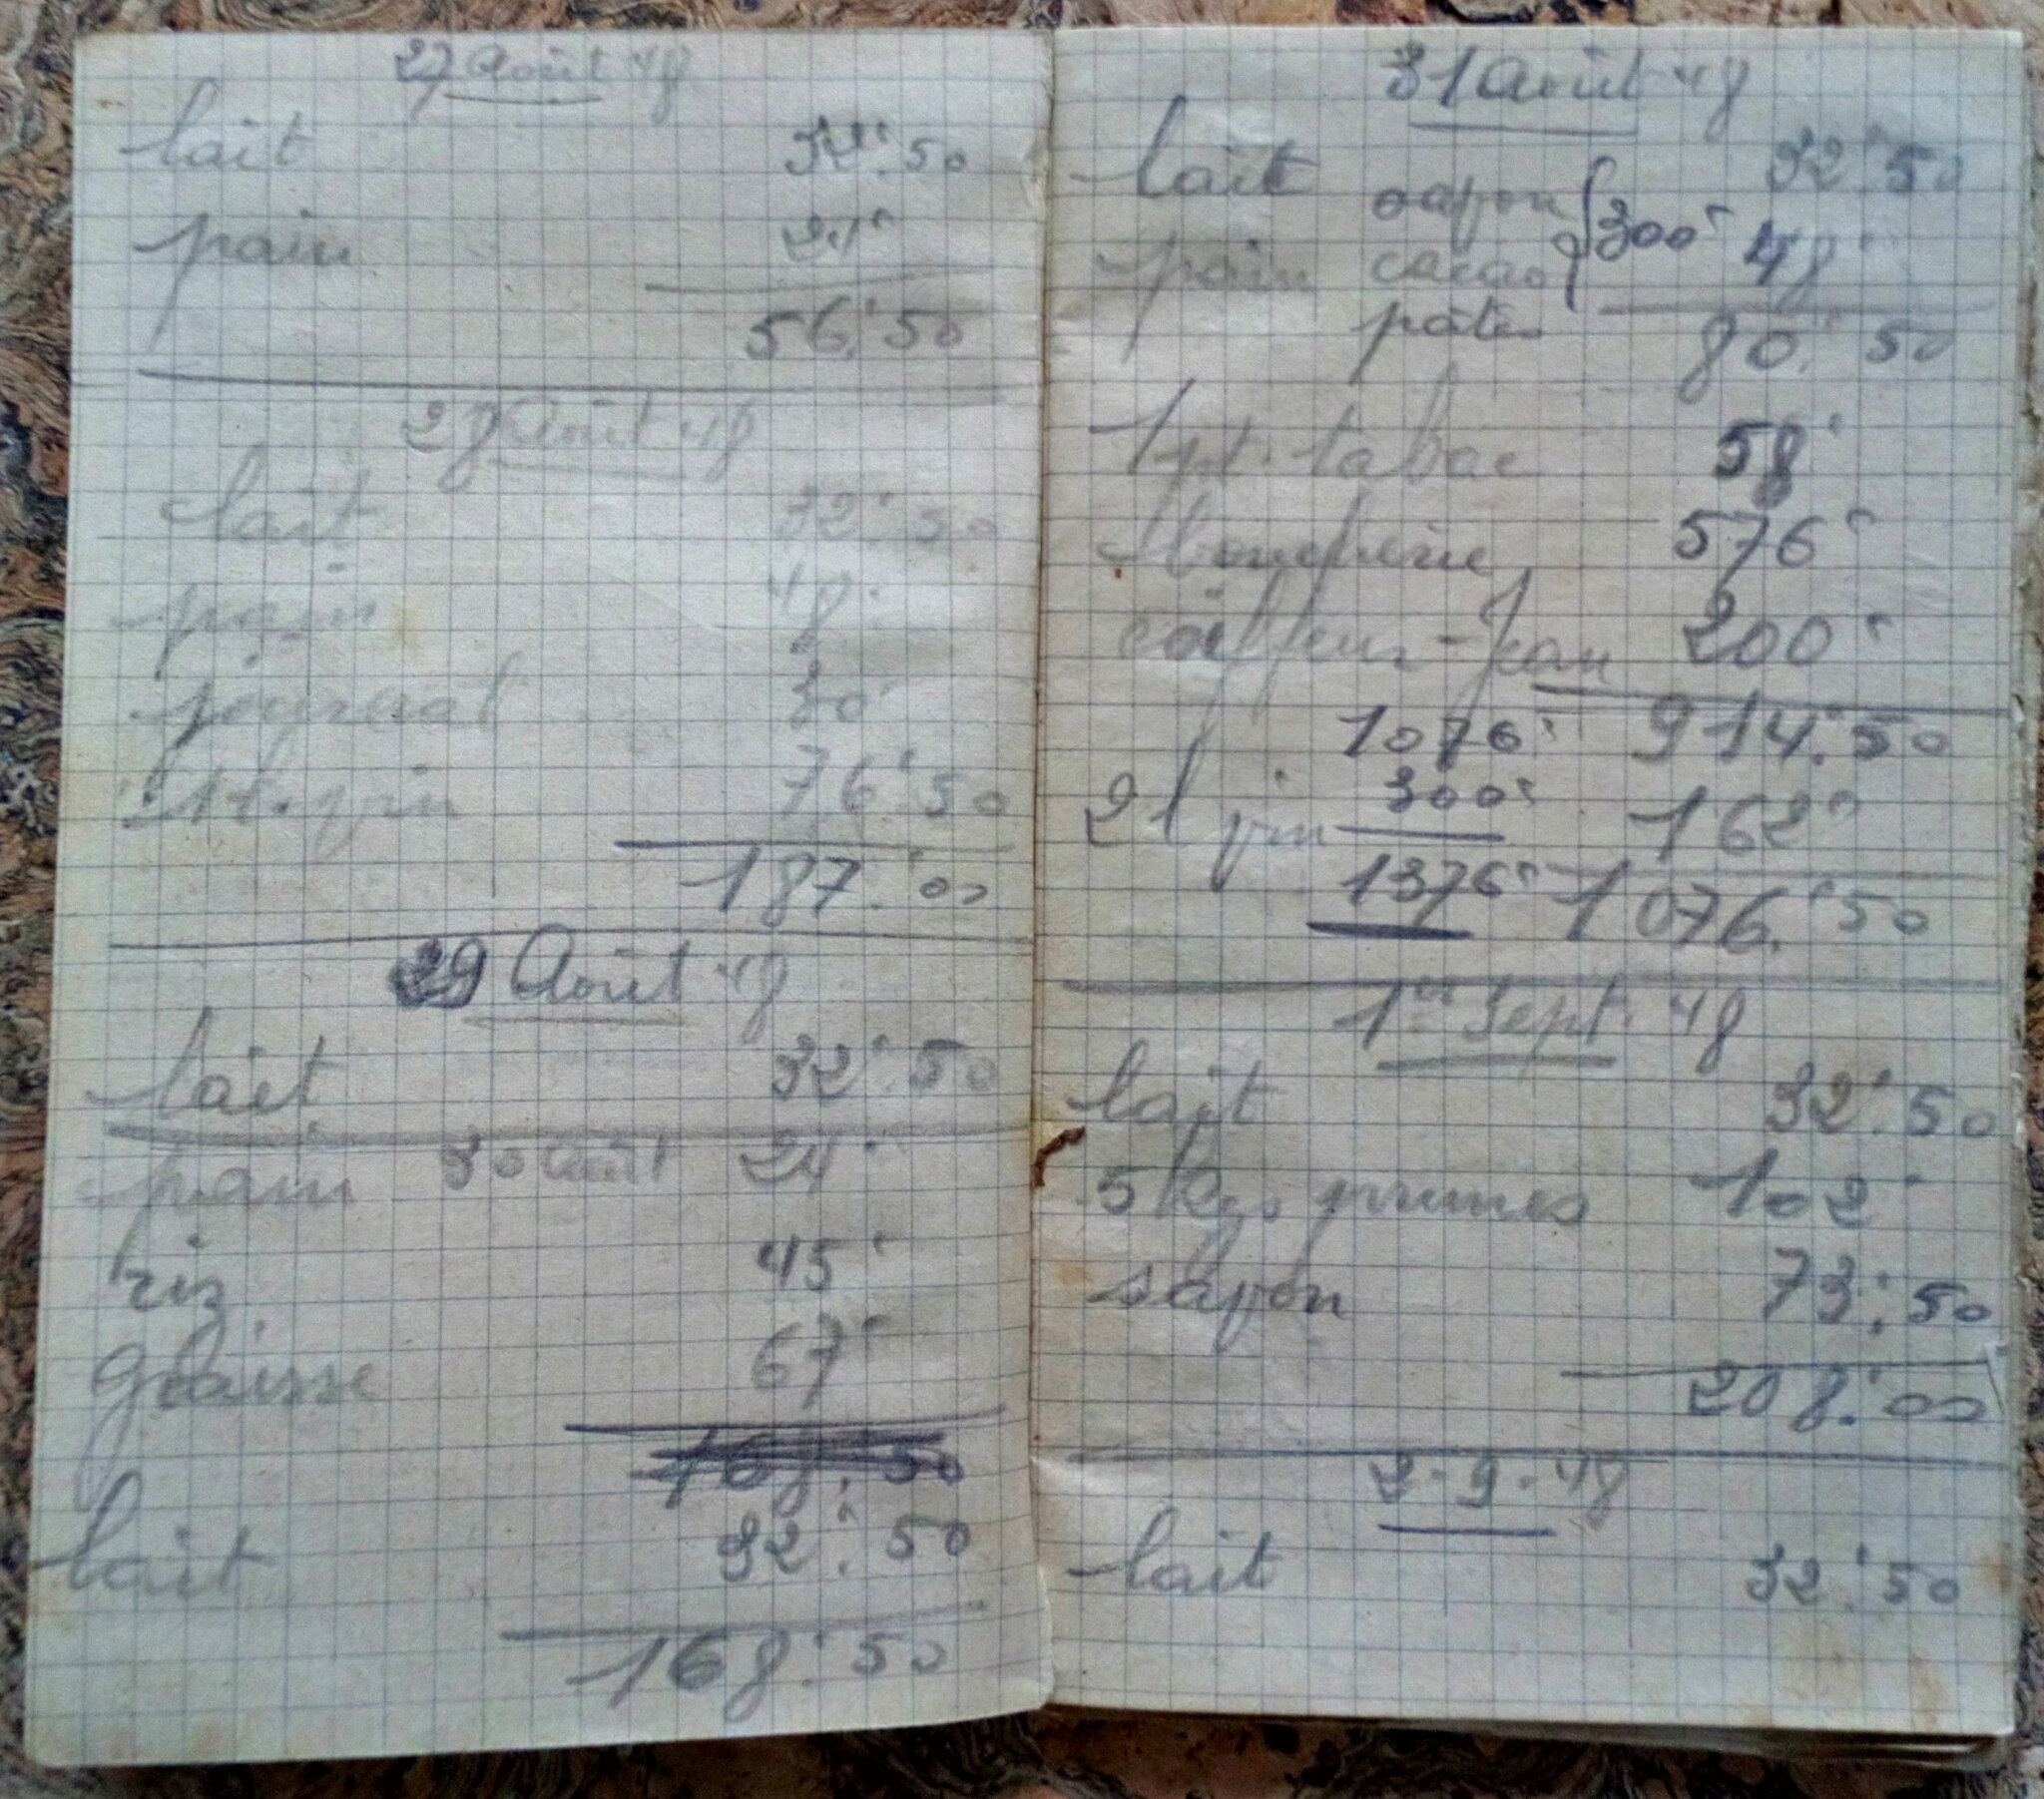 27 Août 48
lait 32f.50
pain 24f
56f.50
28 Août 48
lait 32f.50
pain 48f
journal 30f
1 l. vin 76f.50
187f.00
29 Août 48
lait 32f.50
pain 30 Août 24f
riz 45f
Graisse 67f
168f.50
lait 32f.50
168f.50
31 Août 48
lait 32f.50
savon 300f
pain cacao 48f
pâtes 80f.50
1 pt. tabac 58f
Boucherie 576f
coiffeur - Jean 200f
1076f 914f.50
2 l vin 300f 162f
1376f 1076f.50
1er Sept. 48
lait 32f.50
5 kgs prunes 102f
savon 73f.50
208f.00
2-9-48
lait 32f.50